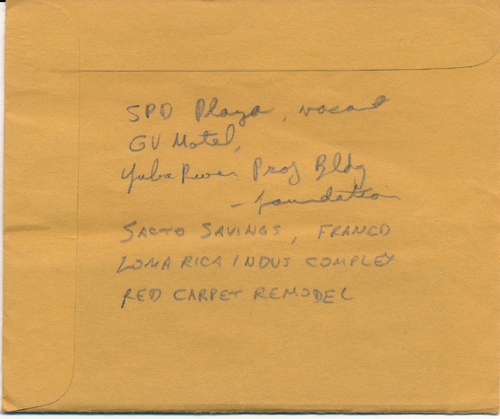 SPD Plaza, vacant
GV Motel,
Yuba River Prof Bldg
- foundation
SACTO SAVINGS, FRAMED
LOMA RICA INDUS COMPLEX
RED CARPET REMODEL